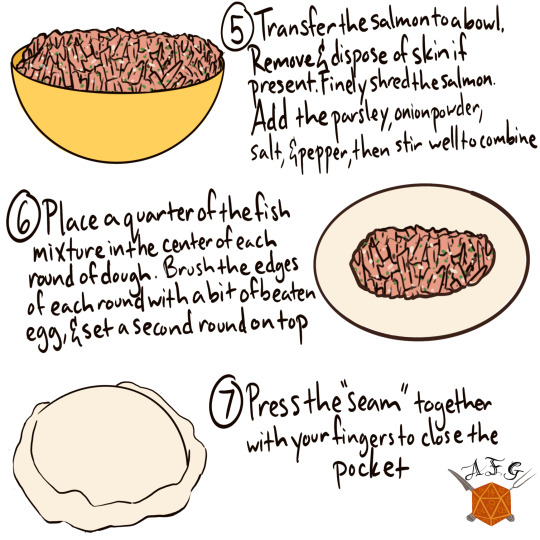 5 Transfer the salmon to a bowl.
Remove & dispose of skin if
present. Finely shred the salmon.
Add the parsley, onion powder,
salt, & pepper, then stir well to combine
6 Place a quarter of the fish
mixture in the center of each
round of dough. Brush the edges
of each round with a bit of beaten
egg, & set a second round on top
7 Press the "seam" together
with your fingers to close the
pocket
A.F.G